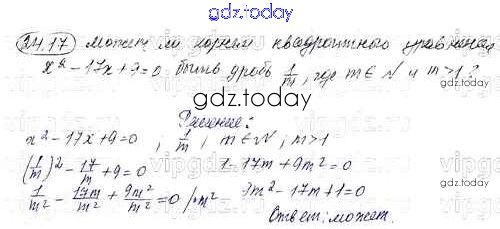 gdz.today
24.17 может ли корнем квадратного уравнения
x² - 17x + 9 = 0 быть дробь 1/m, где m ∈ N и m > 1?
gdz.today
Решение:
x² - 17x + 9 = 0 ; 1/m ; m ∈ N ; m > 1
(1/m)² - 17/m + 9 = 0
1 - 17m + 9m² = 0
1/m² - 17m/m² + 9m²/m² = 0 /·m²
9m² - 17m + 1 = 0
Ответ: может.
gdz.today